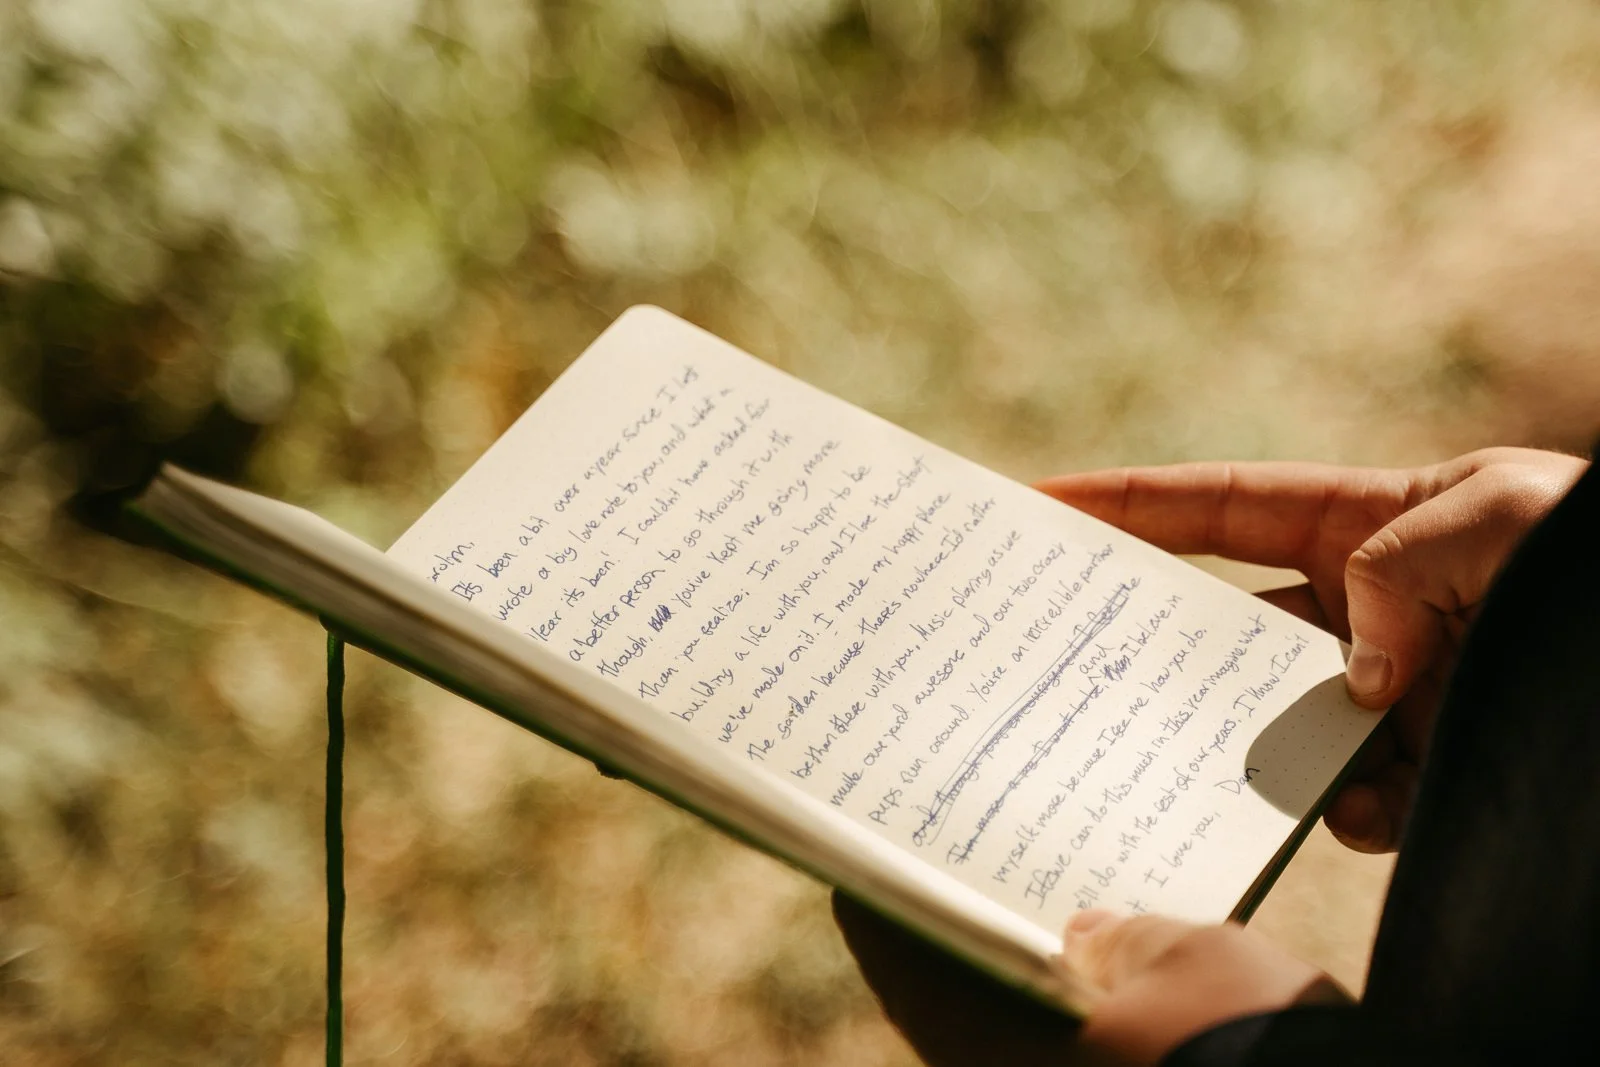 It's been a bit over a year since I last
wrote a big love note to you, and what a
year it's been! I couldn't have asked for
a better person to go through it with
though, you've kept me going more
than you realize. I'm so happy to be
building a life with you, and I love the start
we've made on it. I made my happy place
the garden because there's nowhere I'd rather
be than there with you, Music playing as we
make our yard awesome and our two crazy
pups run around. You're an incredible partner
and through your encouragement I feel like
I'm more me I want to be, and I believe in
myself more because I see me how you do.
If we can do this much in this year imagine what
we'll do with the rest of our years. I know I can't
I love you, Dan